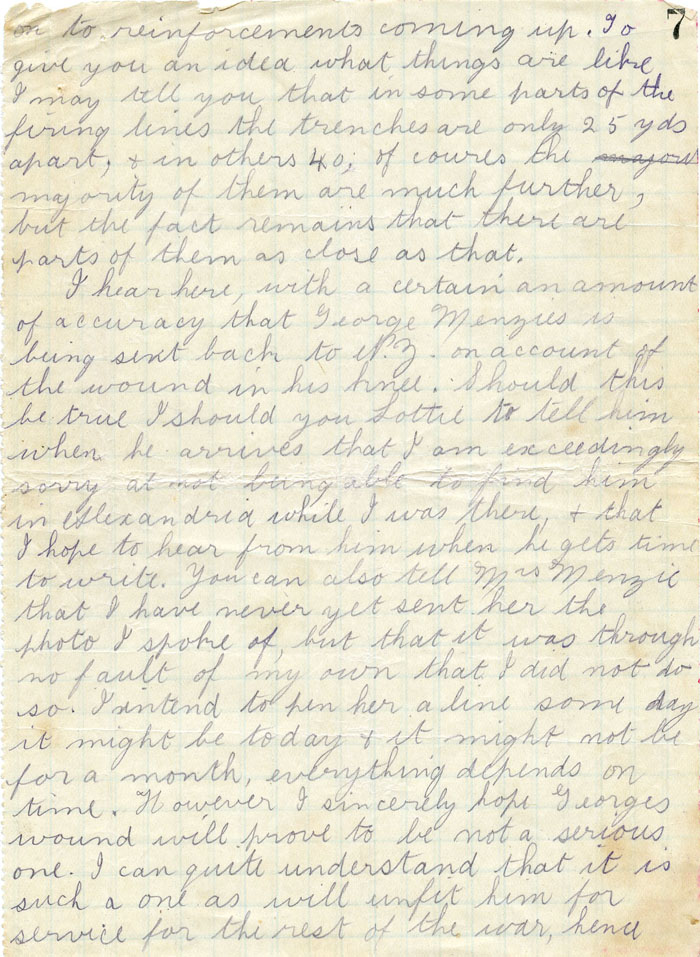 7
on to reinforcements coming up. To
give you an idea what things are like
I may tell you that in some parts of the
firing lines the trenches are only 25 yds
apart, & in others 40; of coures the majori
majority of them are much further,
but the fact remains that there are
parts of them as close as that.
I hear here, with a certain an amount
of accuracy that George Menzies is
being sent back to N.Z. on account of
the wound in his knee. Should this
be true I should you Lottie to tell him
when he arrives that I am exceedingly
sorry at not being able to find him
in Alexandria while I was there, & that
I hope to hear from him when he gets time
to write. You can also tell Mrs Menzie
that I have never yet sent her the
photo I spoke of, but that it was through
no fault of my own that I did not do
so. I intend to pen her a line some day
it might be today & it might not be
for a month, everything depends on
time. However I sincerely hope Georges
wound will prove to be not a serious
one. I can quite understand that it is
such a one as will unfit him for
service for the rest of the war, hence